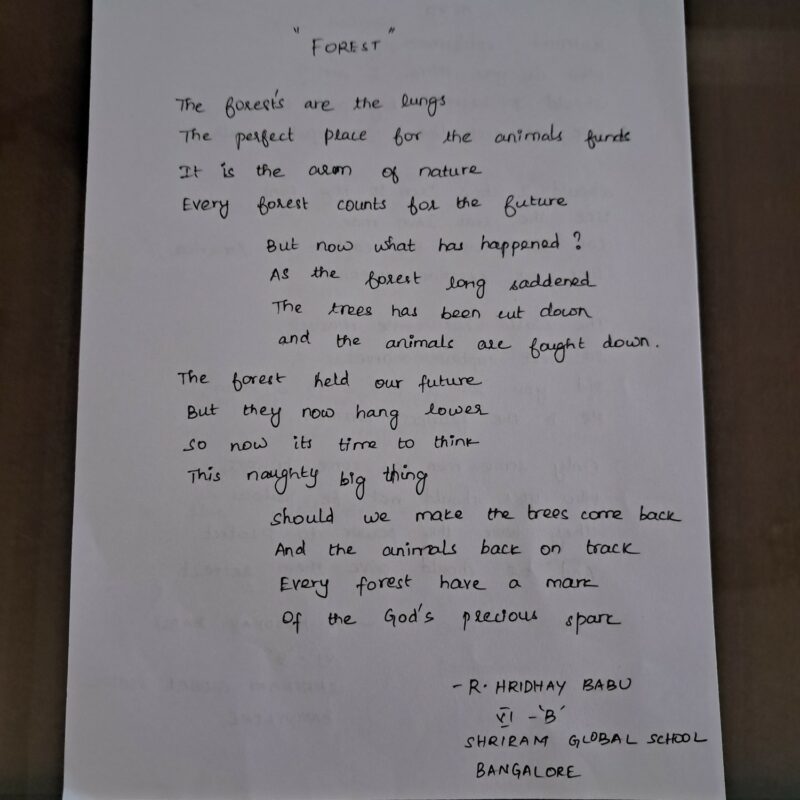 "FOREST"
The forest's are the lungs
The perfect place for the animals funds
It is the arom of nature
Every forest counts for the future
But now what has happened?
As the forest long saddened
The trees has been cut down
and the animals are faught down.
The forest held our future
But they now hang lower
so now its time to think
This naughty big thing
should we make the trees come back
And the animals back on track
Every forest have a mark
Of the God's precious spark
- R. HRIDHAY BABU
VI - 'B'
SHRIRAM GLOBAL SCHOOL
BANGALORE